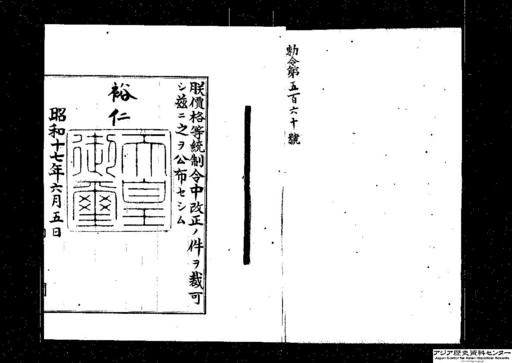 勅令第五百六十號
朕價格等統制令中改正ノ件ヲ裁可
シ茲ニ之ヲ公布セシム
裕仁
天皇御璽
昭和十七年六月五日
アジア歴史資料センター
Japan Center for Asian Historical Records